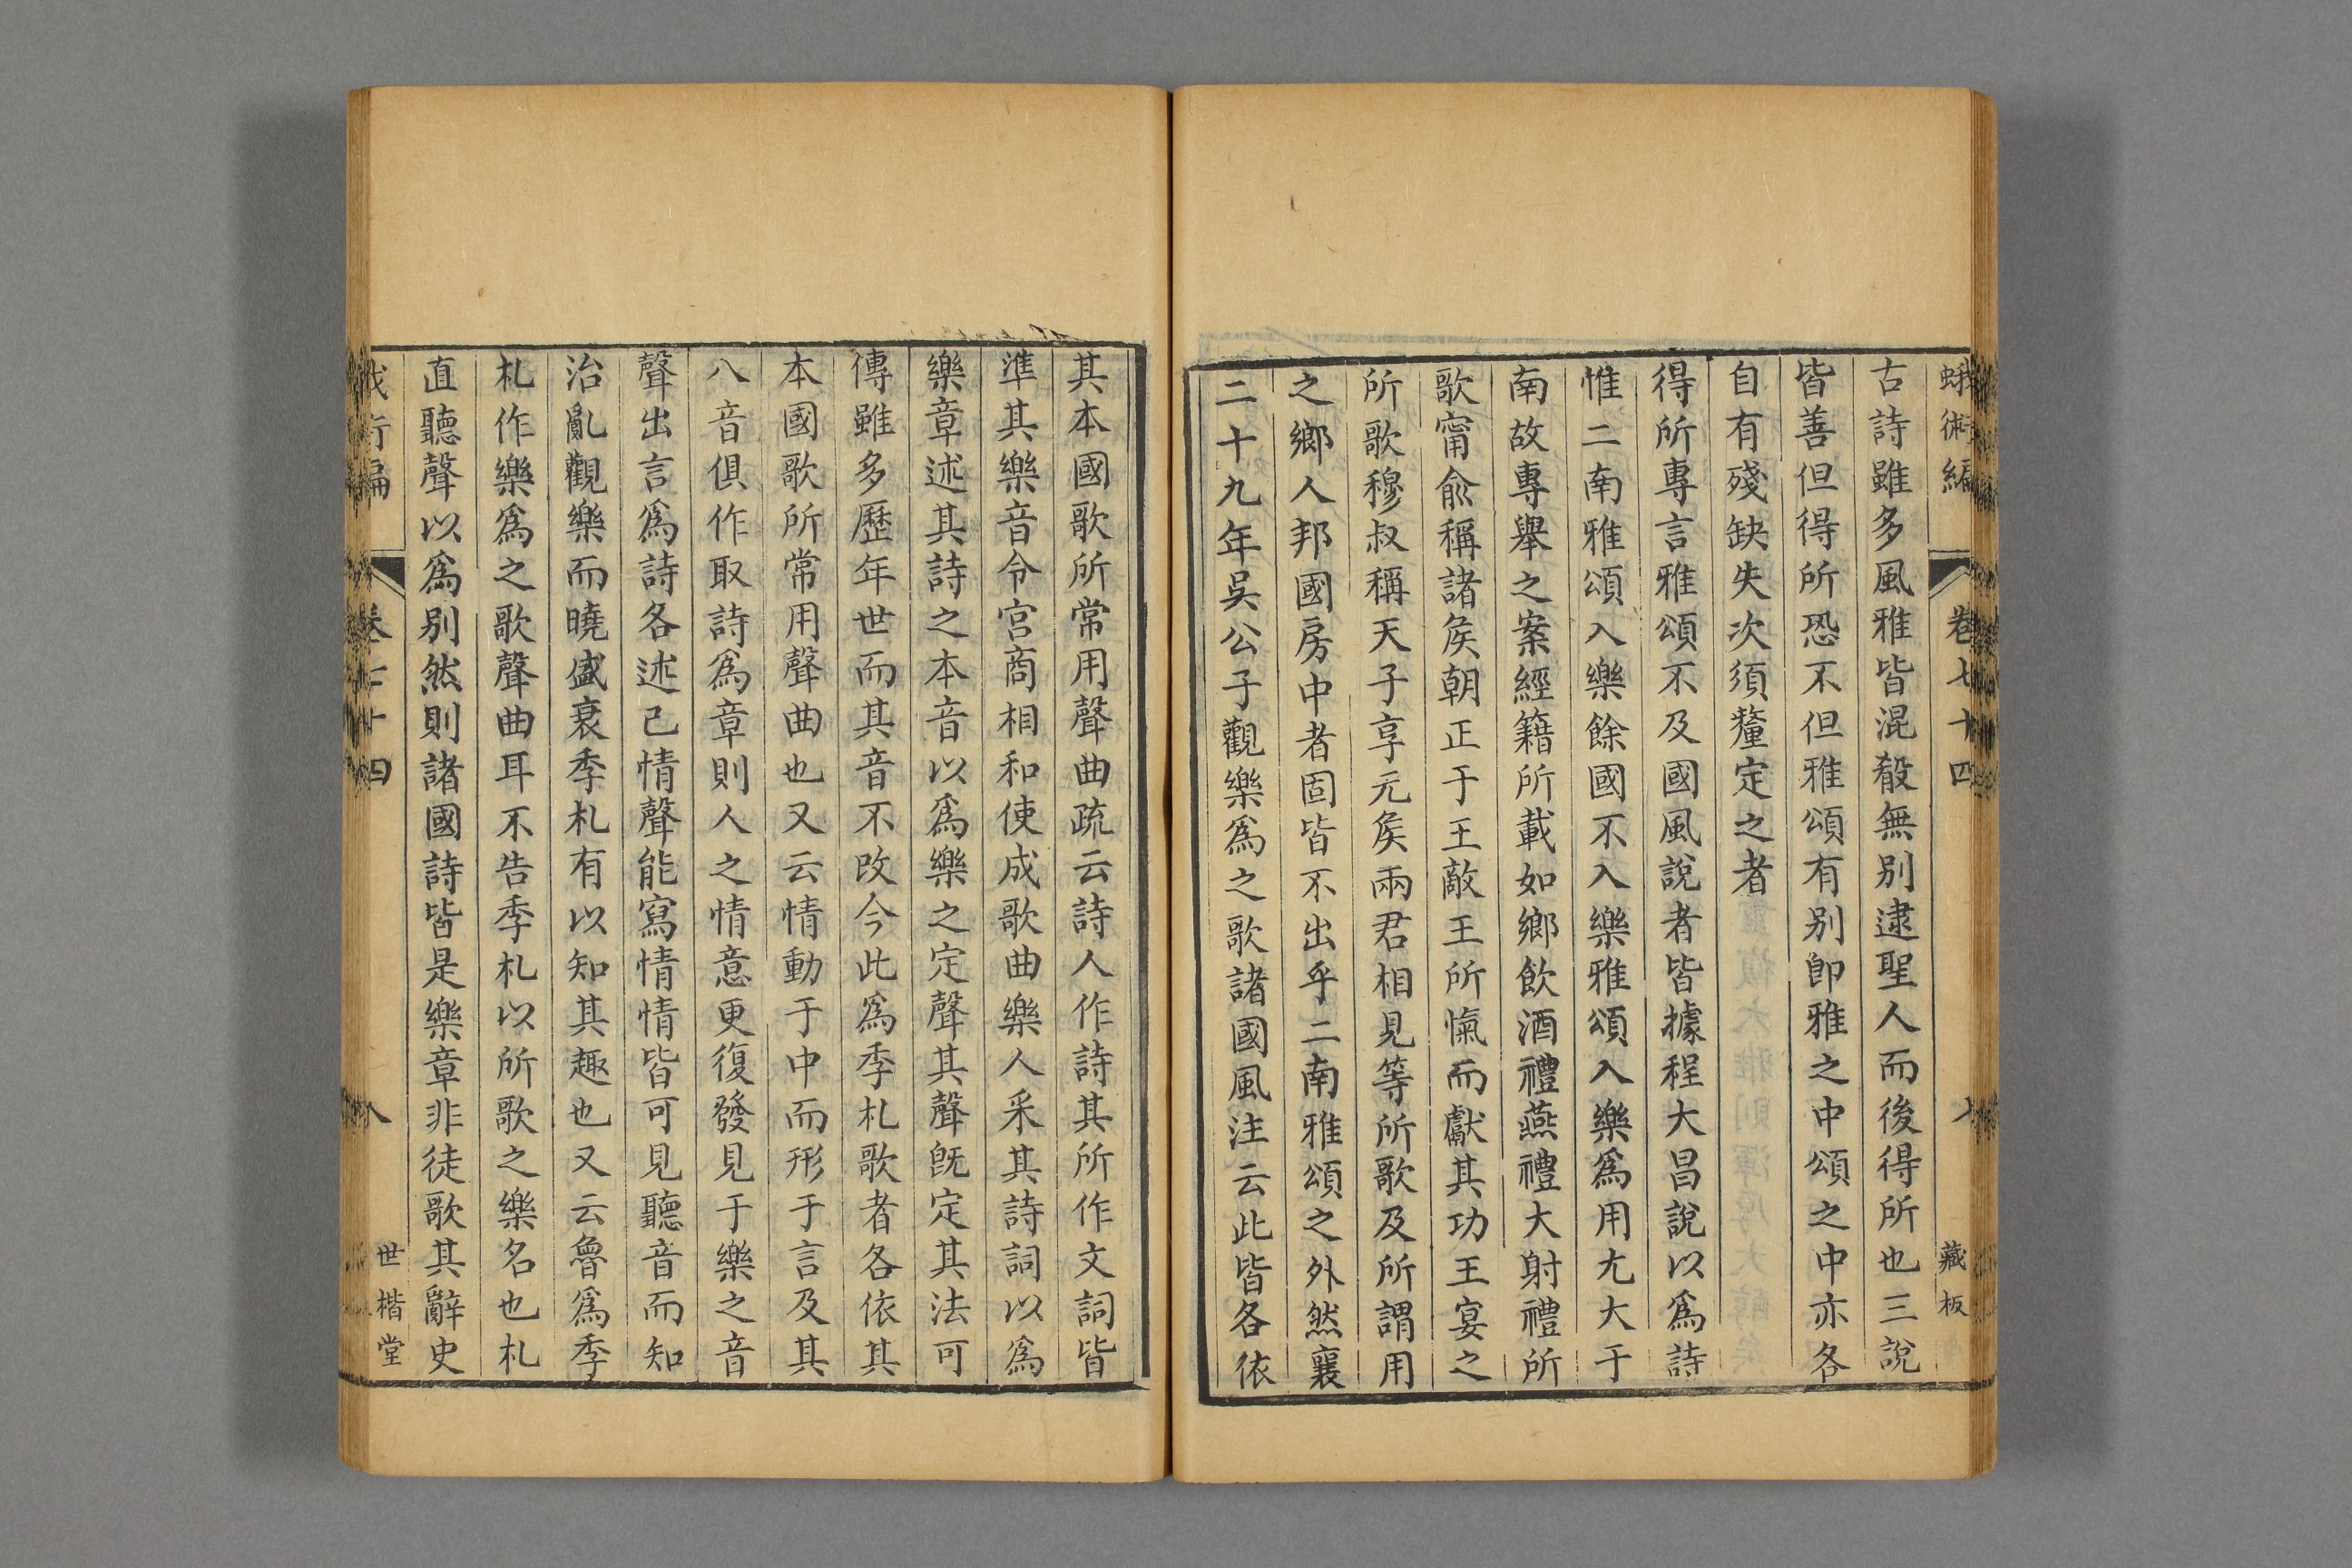 蛾術編 卷七十四 七 藏板
古詩雖多風雅皆混殽無別逮聖人而後得所也三說
皆善但得所恐不但雅頌有別卽雅之中頌之中亦各
自有殘缺失次須釐定之者
得所專言雅頌不及國風說者皆據程大昌說以爲詩
惟二南雅頌入樂餘國不入樂雅頌入樂爲用尢大于
南故專舉之案經籍所載如鄉飲酒禮燕禮大射禮所
歌甯俞稱諸矦朝正于王敵王所愾而獻其功王宴之
所歌穆叔稱天子享元矦兩君相見等所歌及所謂用
之鄉人邦國房中者固皆不出乎二南雅頌之外然襄
二十九年吳公子觀樂爲之歌諸國風注云此皆各依
其本國歌所常用聲曲疏云詩人作詩其所作文詞皆
準其樂音令宮商相和使成歌曲樂人釆其詩詞以爲
樂章述其詩之本音以爲樂之定聲其聲旣定其法可
傳雖多歷年世而其音不改今此爲季札歌者各依其
本國歌所常用聲曲也又云情動于中而形于言及其
八音俱作取詩爲章則人之情意更復發見于樂之音
聲出言爲詩各述己情聲能寫情情皆可見聽音而知
治亂觀樂而曉盛衰季札有以知其趣也又云魯爲季
札作樂爲之歌聲曲耳不告季札以所歌之樂名也札
直聽聲以爲別然則諸國詩皆是樂章非徒歌其辭史
術編 卷七十四 八 世楷堂